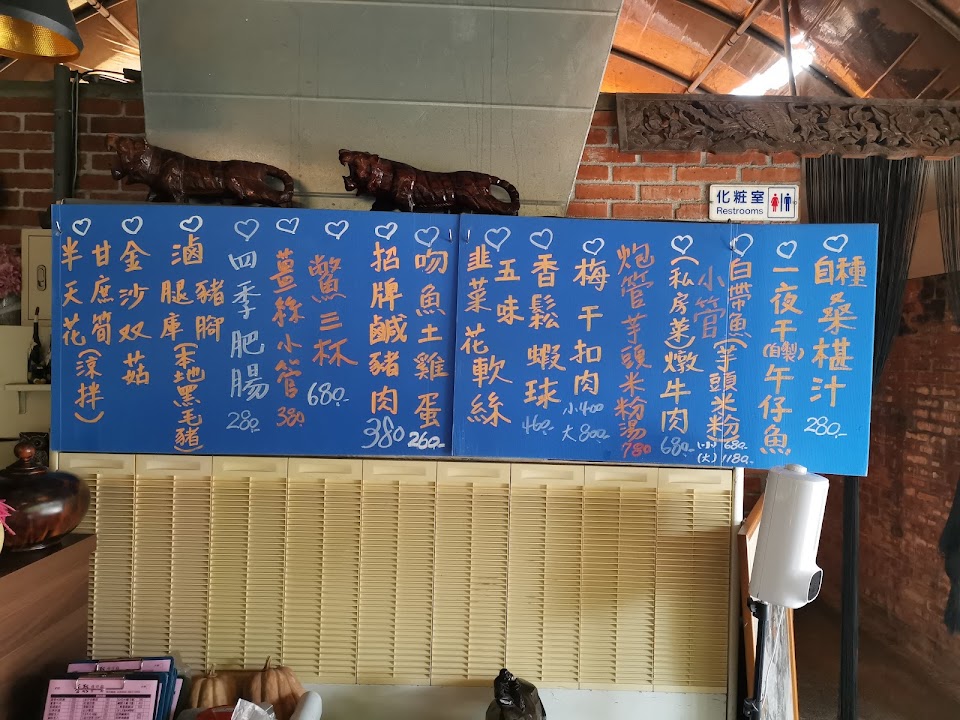 化粧室
Restrooms
自種桑椹汁 280.-
一夜干(自製)午仔魚
白帶魚
小管
(芋頭米粉)
(小) 680.-
(大) 1180.-
(私房菜)燉牛肉 680.-
炮管芋頭米粉湯 780
梅干扣肉
小400
大800.-
香鬆蝦球 460.-
五味
韭菜花軟絲
吻魚土雞蛋 260.-
招牌鹹豬肉 380
鱉三杯 680.-
薑絲小管 380
四季肥腸 280.-
滷
豬腳
腿庫
(在地黑毛豬)
金沙双菇
甘庶筍
半天花
(涼拌)